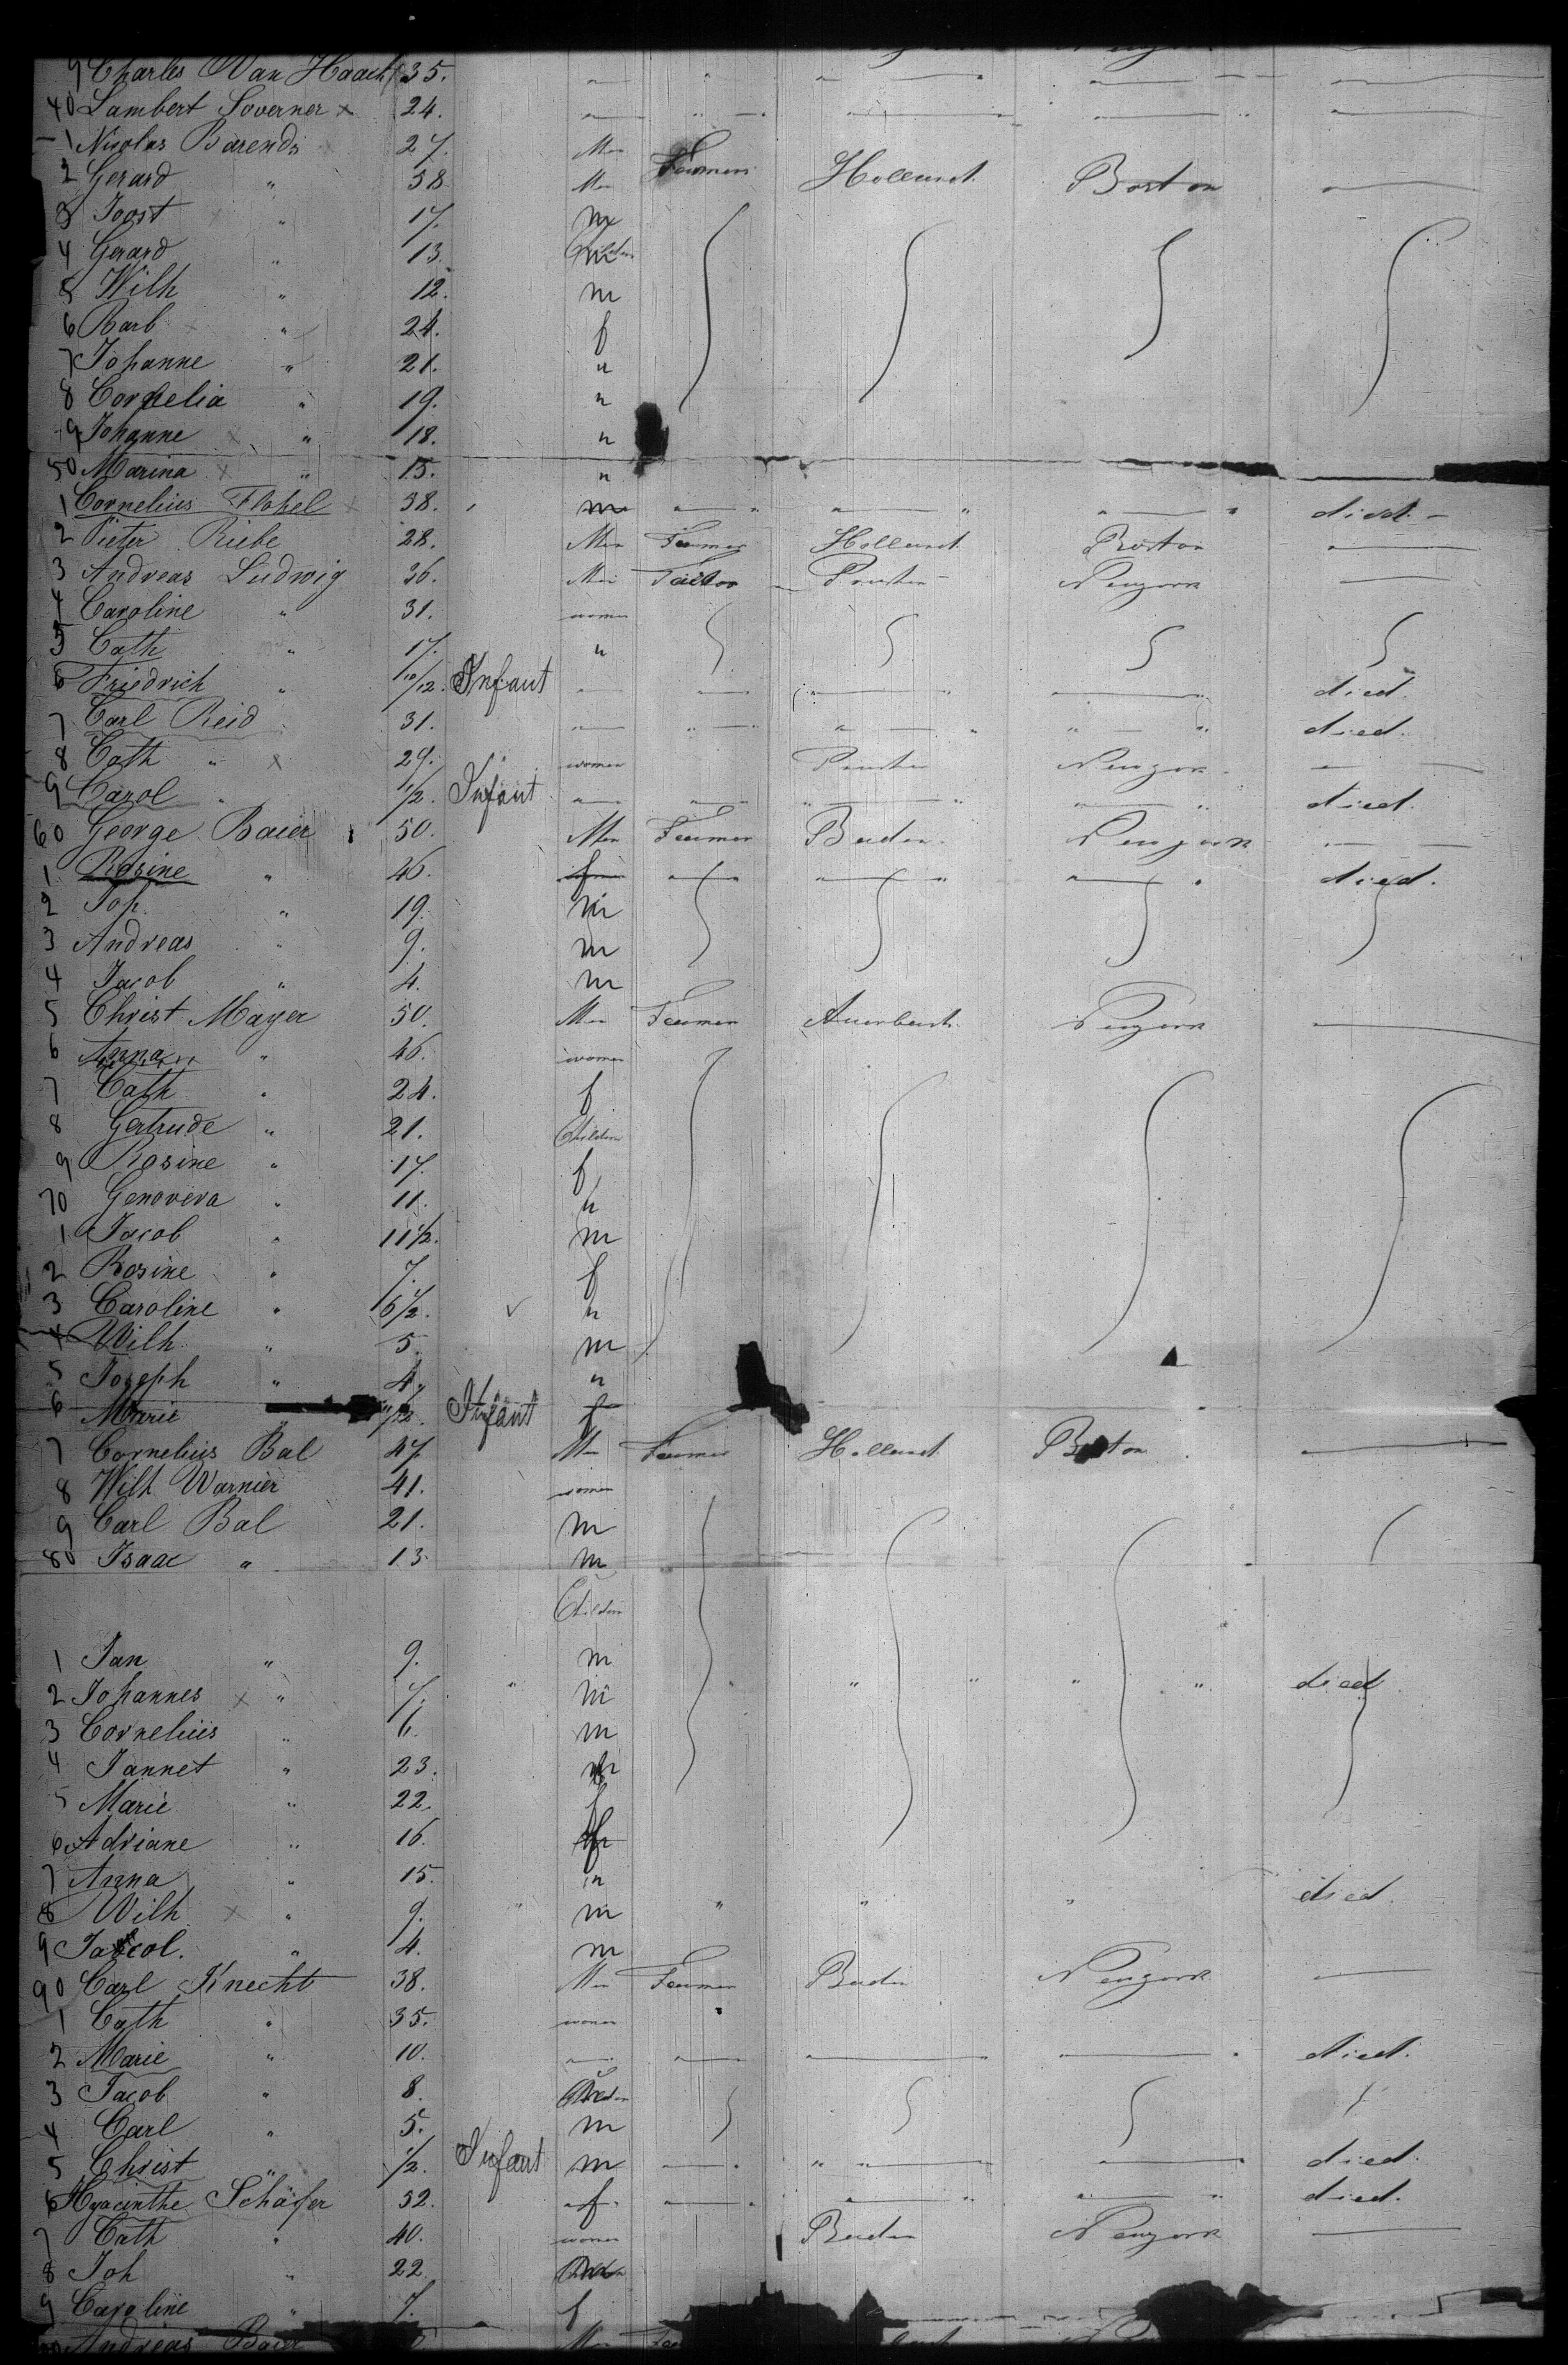 9 Charles Van Haack 35.
40 Lambert Soverner x 24.
1 Nicolas Barends 27. Men
2 Gerard " 58 Men Farmer Holland Boston
3 Joost " 17. m
4 Gerard " 13. Children m
5 Wilh " 12. m
6 Barb " 24. f
7 Johanne " 21. "
8 Cornelia " 19. "
9 Johanne " 18. "
50 Marina " 15. "
1 Cornelius Flohel 38. m died
2 Pieter Riebe 28. Men Farmer Holland Boston
3 Andreas Ludwig 36. Men Tailor Newyork
4 Caroline " 31. women
5 Cath " 17. "
6 Friedrich " 10/12. Infant died.
7 Carl Reid 31. died.
8 Cath " x 29. women Newyork
9 Carol " 1/2. Infant died.
60 George Baier 50. Men Farmer Baden Newyork
1 Rosine " 46. f died.
2 Joh " 19. m
3 Andreas " 9. m
4 Jacob " 4. m
5 Christ Mayer 50. Men Farmer Newyork
6 Anna " 46. women
7 Cath " 24. f
8 Gertrude " 21. Children
9 Rosine " 17. f
70 Genoveva " 11. "
1 Jacob " 11 1/2. m
2 Rosine " 7. f
3 Caroline " 6 1/2. "
4 Wilh " 5. m
5 Joseph " 4. "
6 Marie " Infant f
7 Cornelius Bal 47. Men Farmer Holland Boston
8 Wilh Warnier 41. women
9 Carl Bal 21. m
80 Isaac " 13. m
Children
1 Jan " 9. m
2 Johannes x " 7. m died
3 Cornelius " 6. m
4 Jannet " 23.
5 Marie " 22. f
6 Adriane " 16. f
7 Anna " 15. "
8 Wilh x " 9. m died.
9 Jacol. " 4. m
90 Carl Knecht 38. Men Farmer Baden Newyork
1 Cath " 35. women
2 Marie " 10. died.
3 Jacob " 8. Children
4 Carl " 5. m
5 Christ " 1/2. Infant m died.
6 Hyacinthe Schäfer 52. f died.
7 Cath " 40. women Baden Newyork
8 Joh " 22.
9 Caroline " 7. f
Andreas Baier Men